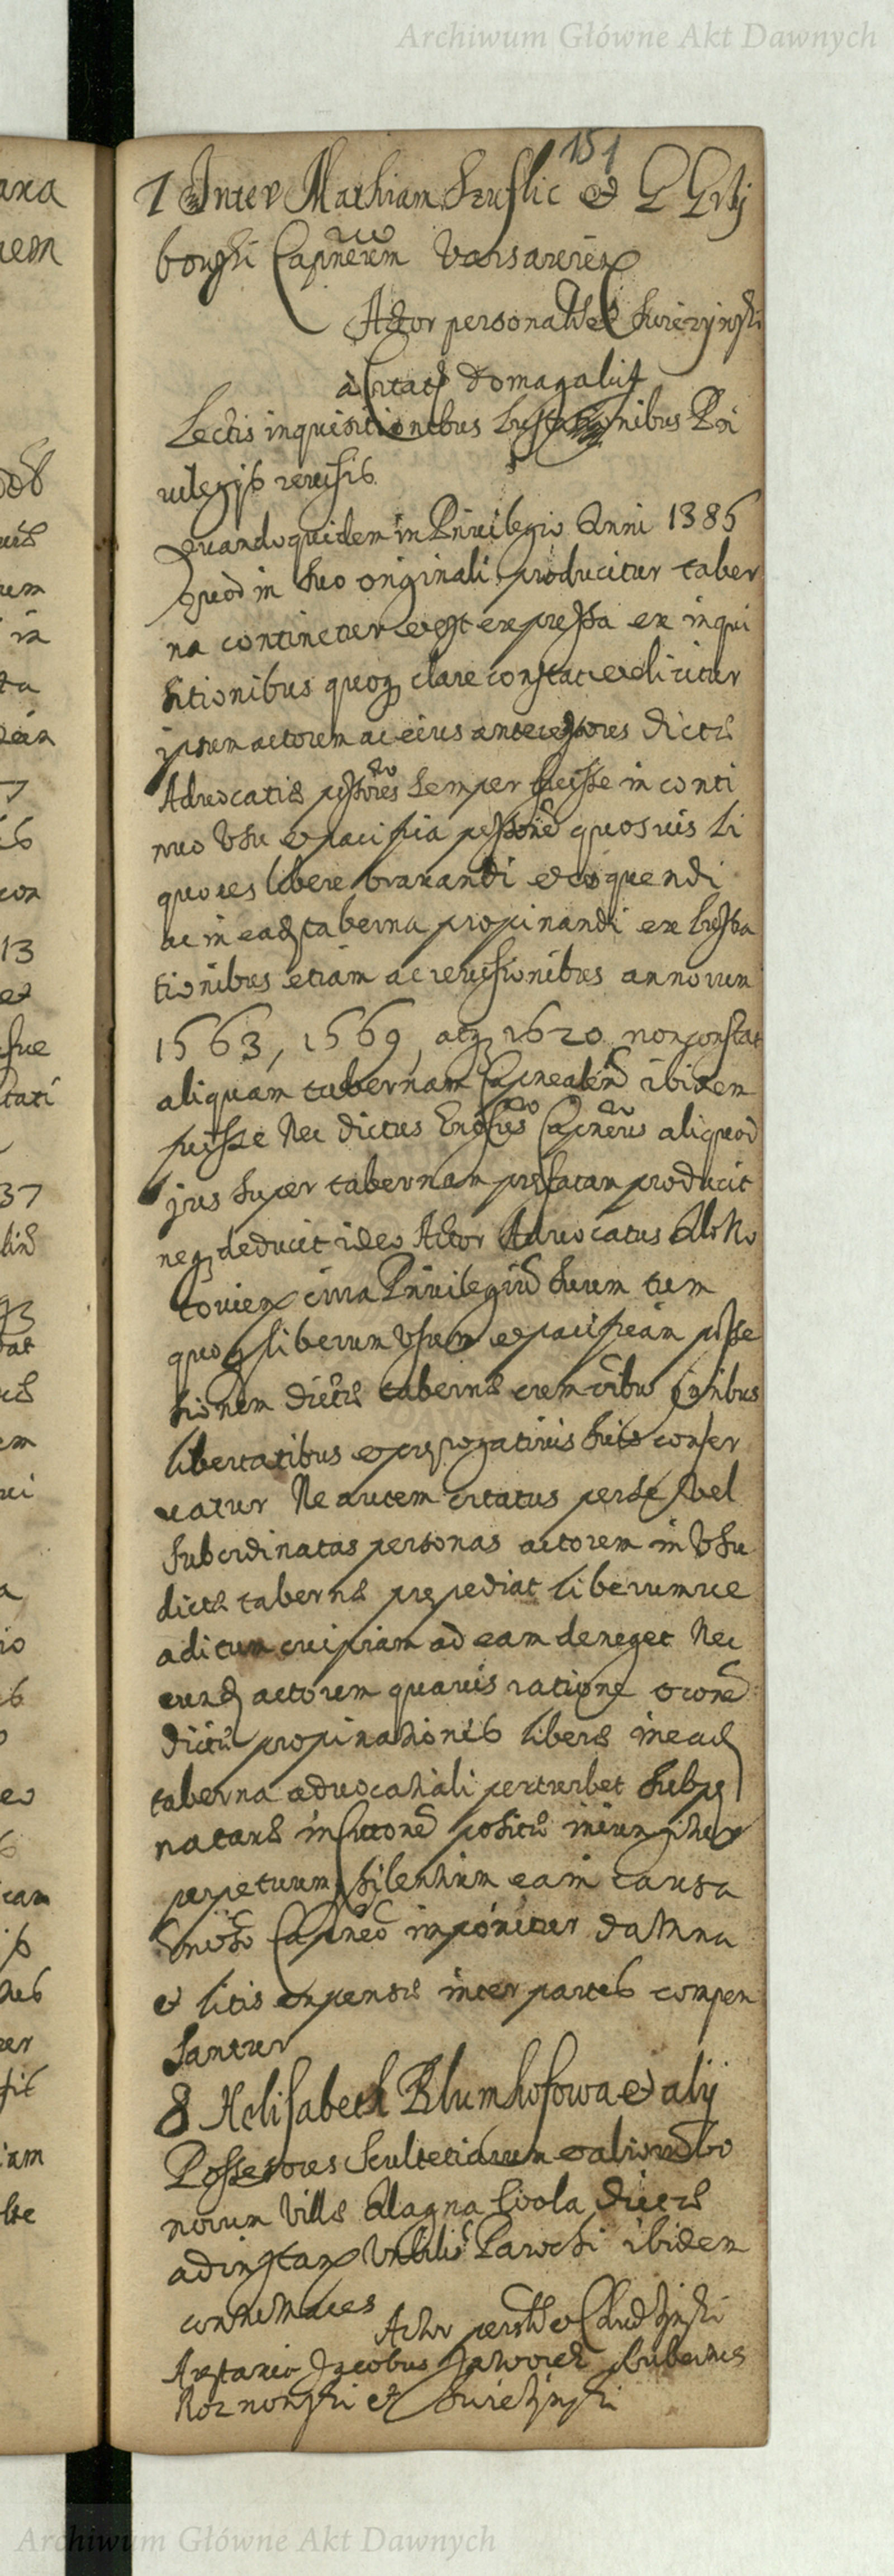 Archiwum Główne Akt Dawnych
151
7 Inter Mathiam Szuflic et G Grzy
bowski Capneum Varsavien
Actor personalr et Swiezynski
a Citati Domagalicz
Lectis inquisitionibus Lustrationibus Pri
vilegijs revisis
Quandoquidem in Privilegio Anni 1386
quod in suo originali producitur taber
na continetur et est expressa ex inqui
sitionibus quoq clare constat et elicitur
ipsum actorem ac eius antecessores dictæ
Advocatiæ pssores semper fuisse in conti
nuo Usu et pacifica pssione quosvis li
quores libere braxandi et coquendi
ac in ead taberna propinandi ex lustra
tionibus etiam ac revisionibus annorum
1563, 1569, atq 1620 non constat
aliquam tabernam Capnealem ibidem
fuisse Nec dictus Gnosus Capneus aliquod
jus super tabernam præfatam producit
neq deducit ideo Actor Advocatus
circa Privilegiū suum tum
quoq liberum Usum et pacificam posse
sionem dictæ tabernæ cum oibus
libertatibus et prærogativis suis conser
vatur Ne autem citatus per se vel
subordinatas personas actorem in Usu
dictæ tabernæ præpediat liberumve
aditum cuipiam ad eam deneget Nec
eund actorem quavis ratione et occone
dictæ propinationis liberæ in ead
taberna advocatiali perturbet sub pæ
na in Citatione positæ iniungitur
perpetuum silentium eam causa
Gnoso Capneo imponitur damna
et litis expensæ inter partes compen
santur
8 Helisabeth Blumhofowa et alij
Possessores Scultetiarum et aliorum bo
norum Villæ Magna Wola dictæ
ad instan Vnbilis Parochi ibidem
contumaces
Actor personalr et Chudzinski
Jacobus
et Swiezynski
Archiwum Główne Akt Dawnych